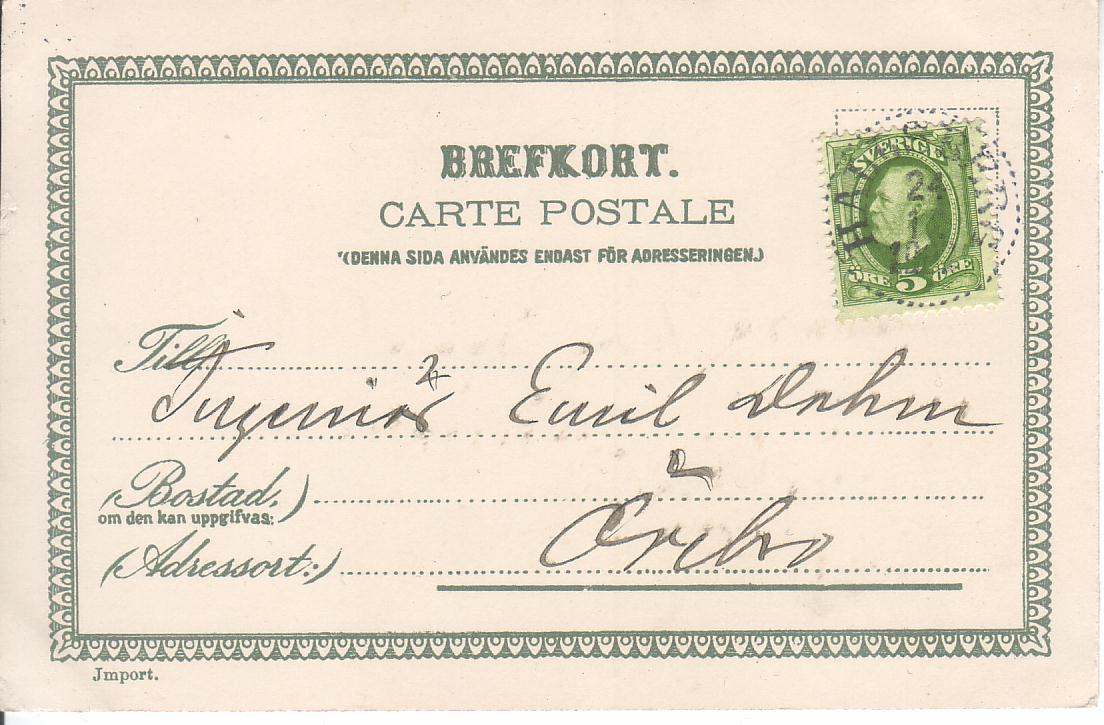 BREFKORT.
CARTE POSTALE
(DENNA SIDA ANVÄNDES ENDAST FÖR ADRESSERINGEN.)
SVERIGE
24
1
ÖRE 5 ÖRE
Till
Ingeniör Emil Dehm
(Bostad,)
om den kan uppgifvas:
Örebro
(Adressort:)
Jmport.